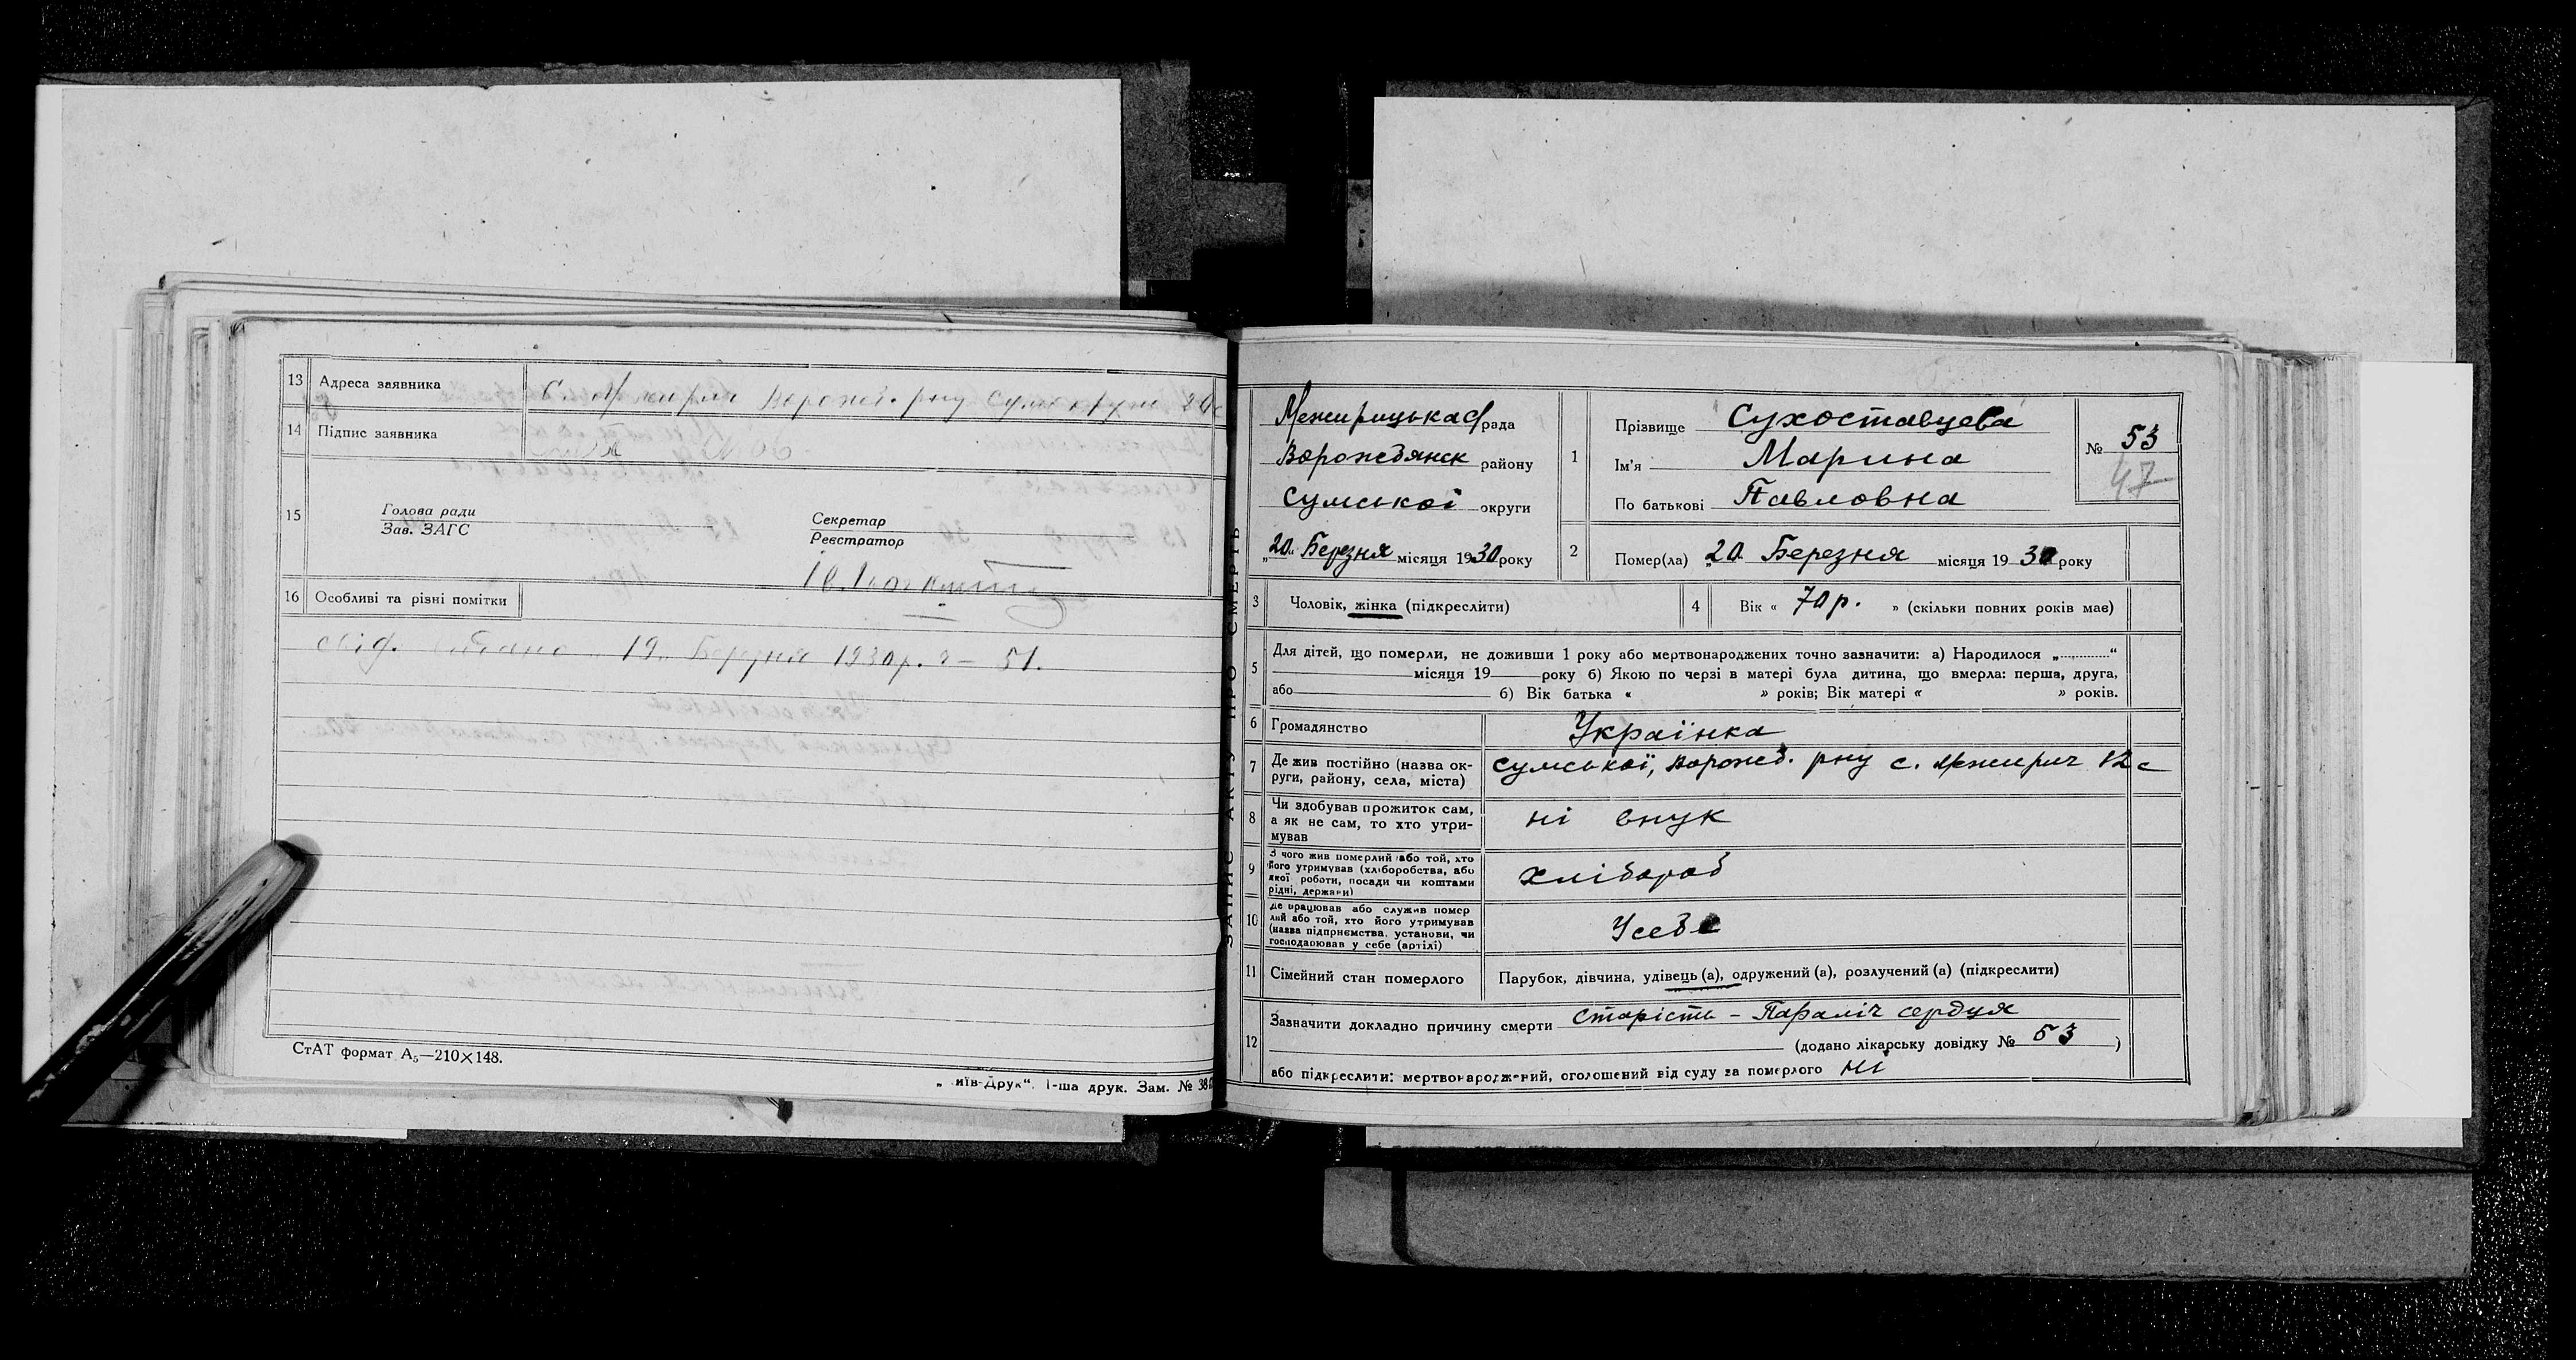 13 Адреса заявника С. Межирич Ворожб. рну Сумокруж 20 с
14 Підпис заявника
15 Голова ради
Зав. ЗАГС
Секретар
Реєстратор
16 Особливі та різні помітки
свід. видано 19 Березня 1930 р. 51.
СтАТ формат А₅—210×148.
„ иїв-Друк“. 1-ша друк. Зам. № 38
ЗАПИС АКТУ ПРО СМЕРТЬ
Межирицька с/рада
Ворожбянск району
Сумської округи
„20„ Березня місяця 1930 року
1 Прізвище Сухоставцева
Ім'я Марина
По батькові Павловна
№ 53
47
2 Помер(ла) 20 Березня місяця 1930 року
3 Чоловік, жінка (підкреслити)
4 Вік « 70 р. » (скільки повних років має)
5 Для дітей, що померли, не доживши 1 року або мертвонароджених точно зазначити: а) Народилося „ “
місяця 19 року б) Якою по черзі в матері була дитина, що вмерла: перша, друга,
або б) Вік батька « » років; Вік матері « » років.
6 Громадянство Українка
7 Де жив постійно (назва округи, району, села, міста) Сумської, Ворожб. рну с. Межирич 12 с
8 Чи здобував прожиток сам,
а як не сам, то хто утримував ні внук
9 З чого жив померлий або той, хто
його утримував (хліборобства, або
якої роботи, посади чи коштами
рідні, держави) хлібороб
10 Де працював або служив помер
лий або той, хто його утримував
(назва підприємства, установи, чи
господарював у себе (артілі) Усебе
11 Сімейний стан померлого Парубок, дівчина, удівець (а), одружений (а), розлучений (а) (підкреслити)
12 Зазначити докладно причину смерти Старість – Параліч сердця
(додано лікарську довідку № 53 )
або підкреслити: мертвонароджений, оголошений від суду за померлого ні